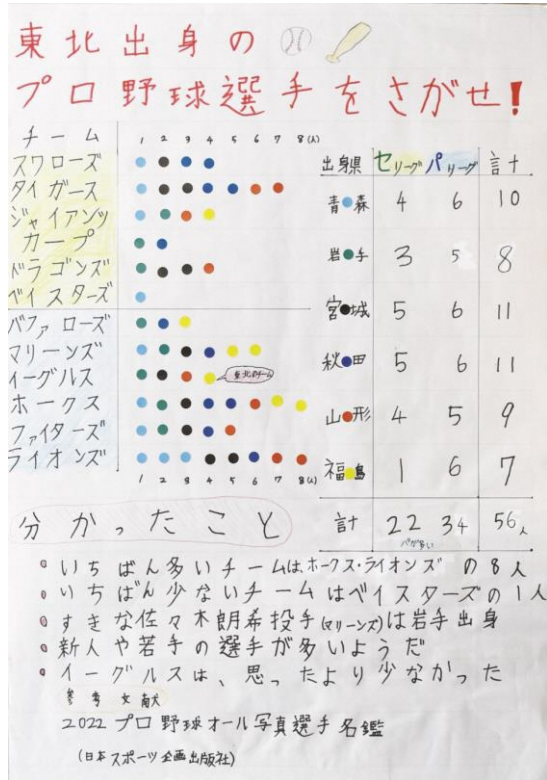 東北出身の
プロ野球選手をさがせ!
チーム 1 2 3 4 5 6 7 8(人)
スワローズ
タイガース
ジャイアンツ
カープ
ドラゴンズ
ベイスターズ
バファローズ
マリーンズ
イーグルス 東北のチーム
ホークス
ファイターズ
ライオンズ
1 2 3 4 5 6 7 8(人)
出身県 セリーグ パリーグ 計
青森 4 6 10
岩手 3 5 8
宮城 5 6 11
秋田 5 6 11
山形 4 5 9
福島 1 6 7
計 22 34 56人
パが多い
分かったこと
いちばん多いチームはホークス・ライオンズの8人
いちばん少ないチームはベイスターズの1人
すきな佐々木朗希投手(マリーンズ)は岩手出身
新人や若手の選手が多いようだ
イーグルスは、思ったより少なかった
参考文献
2022プロ野球オール写真選手名鑑
(日本スポーツ企画出版社)